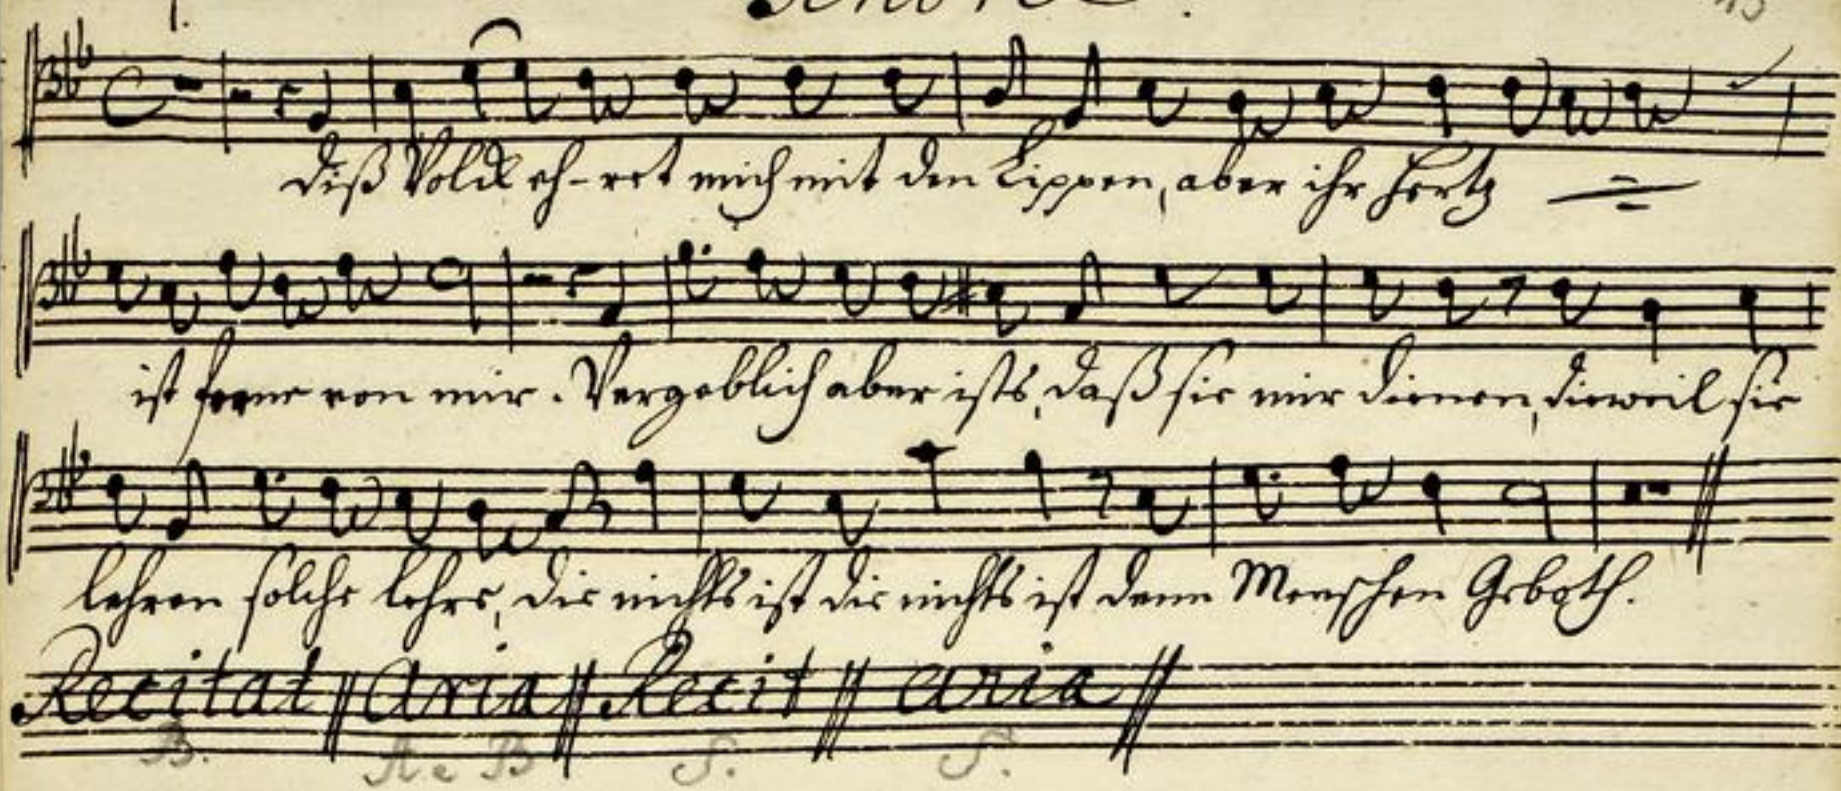 Tenore.
diß Volck eh-ret mich mit den Lippen, aber ihr Hertz
ist ferne von mir. Vergeblich aber ists, daß sie mir dienen, dieweil sie
lehren solche lehre, die nichts ist die nichts ist denn Menschen Geboth.
Recitat || Aria || Recit || aria ||
B. A e B S. S.